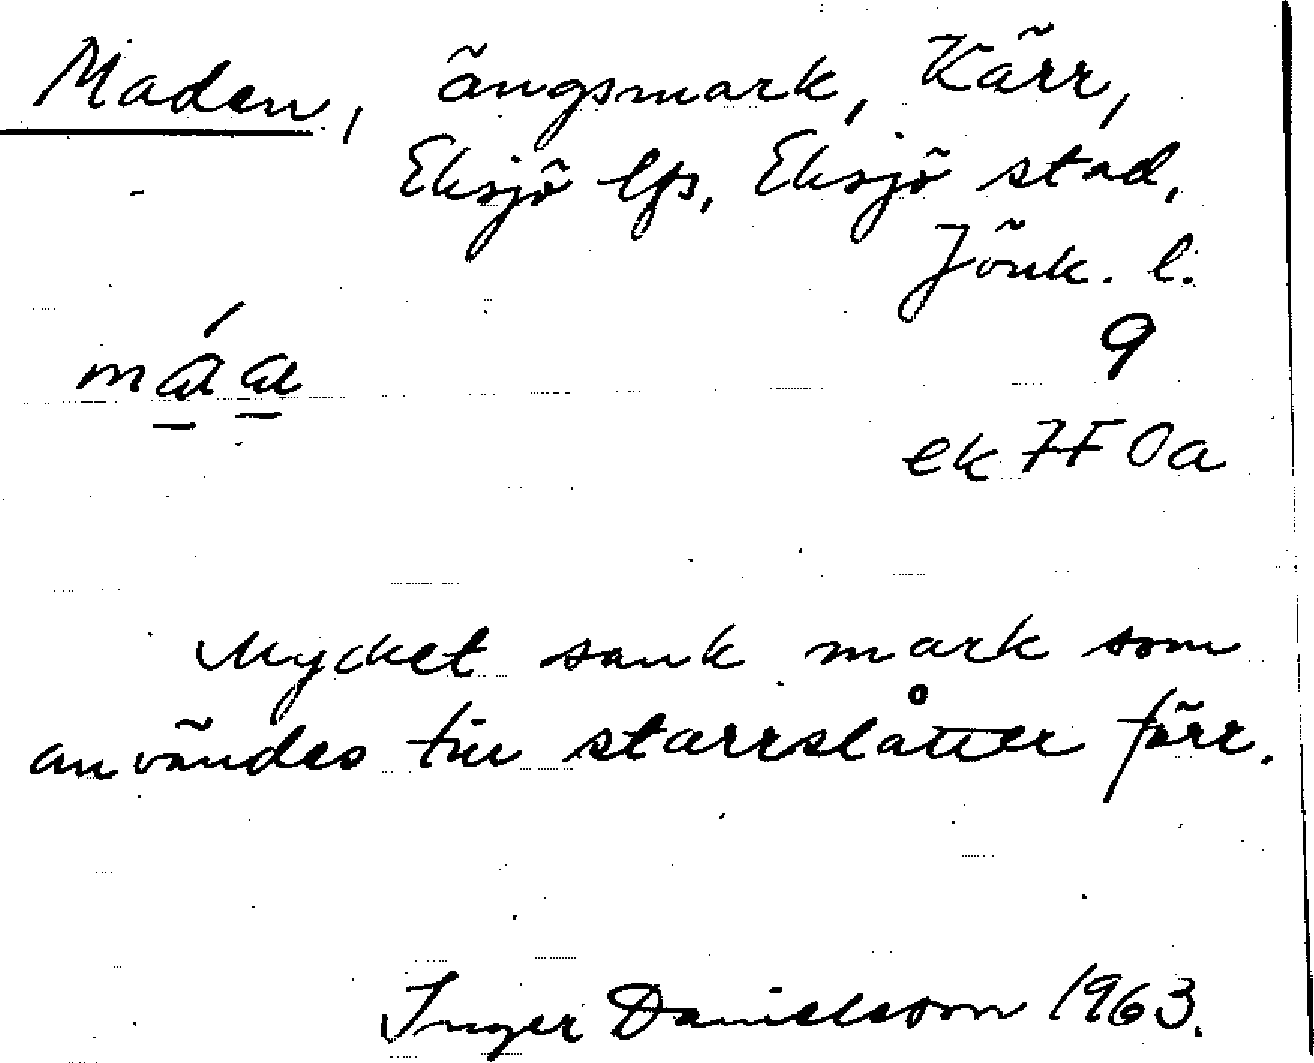 Maden, ängsmark, Kärr,
Eksjö lfs, Eksjö stad,
Jönk. l.
9
ek 7F 0a
Mycket sank mark som
användes till starrslåtter förr.
Inger Danielsson 1963.